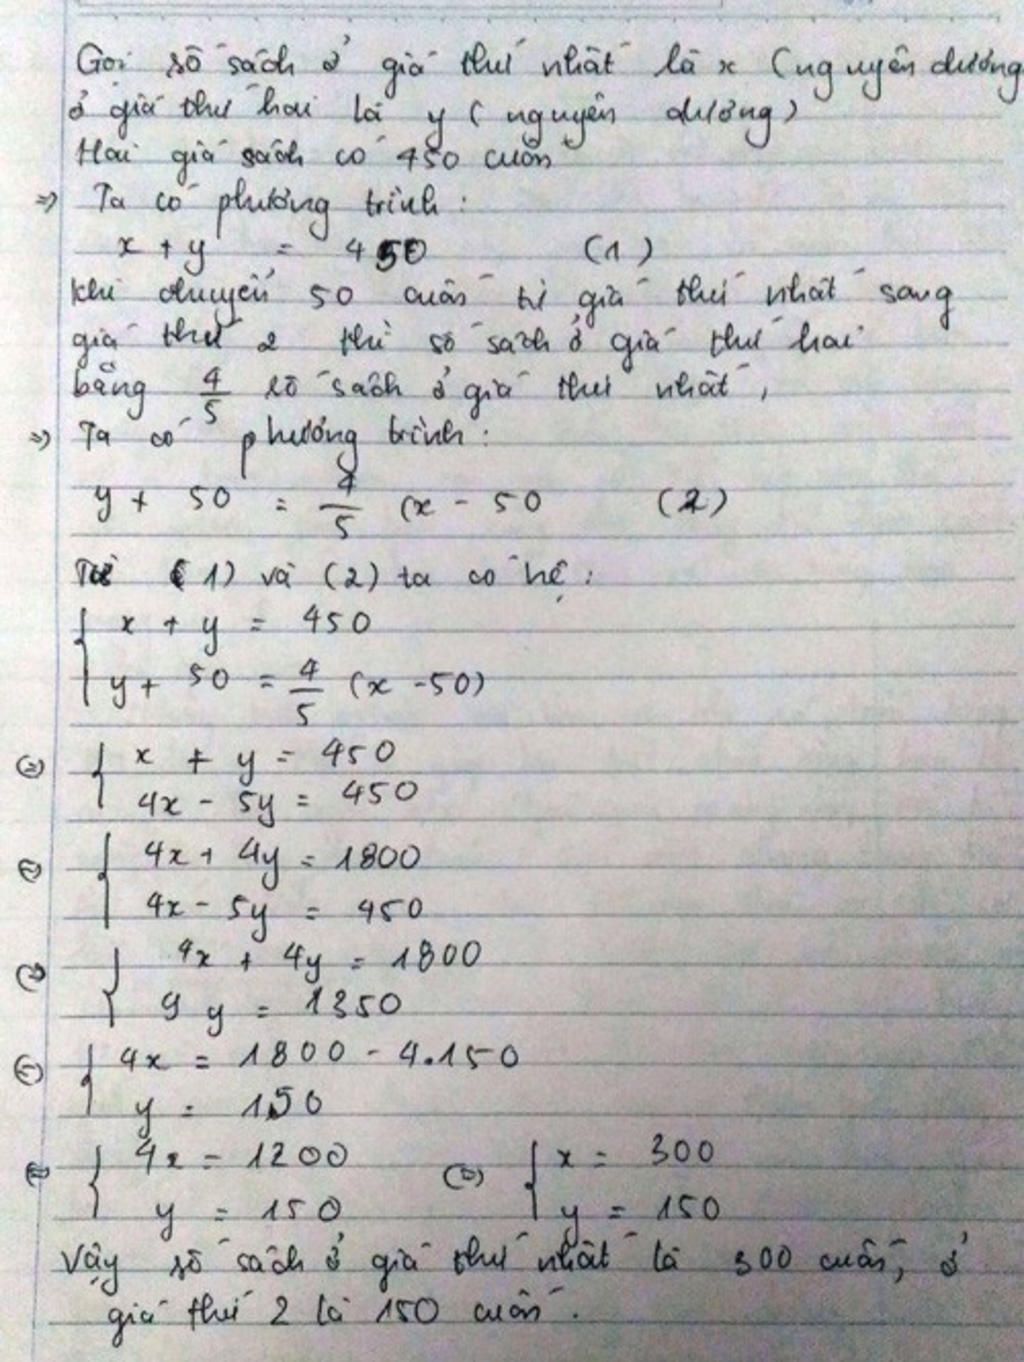 Gọi số sách ở giá thứ nhất là x (nguyên dương
ở giá thứ hai là y (nguyên dương)
Hai giá sách có 450 cuốn
=> Ta có phương trình:
x + y = 450 (1)
Khi chuyển 50 cuốn từ giá thứ nhất sang
giá thứ 2 thì số sách ở giá thứ hai
bằng 4/5 số sách ở giá thứ nhất,
=> Ta có phương trình:
y + 50 = 4/5 (x - 50 (2)
Từ (1) và (2) ta có hệ:
{ x + y = 450
y + 50 = 4/5 (x - 50)
(=) { x + y = 450
4x - 5y = 450
(=) { 4x + 4y = 1800
4x - 5y = 450
(=) { 4x + 4y = 1800
9y = 1350
(=) { 4x = 1800 - 4.150
y = 150
(=) { 4x = 1200 (=) { x = 300
y = 150 y = 150
Vậy số sách ở giá thứ nhất là 300 cuốn, ở
giá thứ 2 là 150 cuốn.